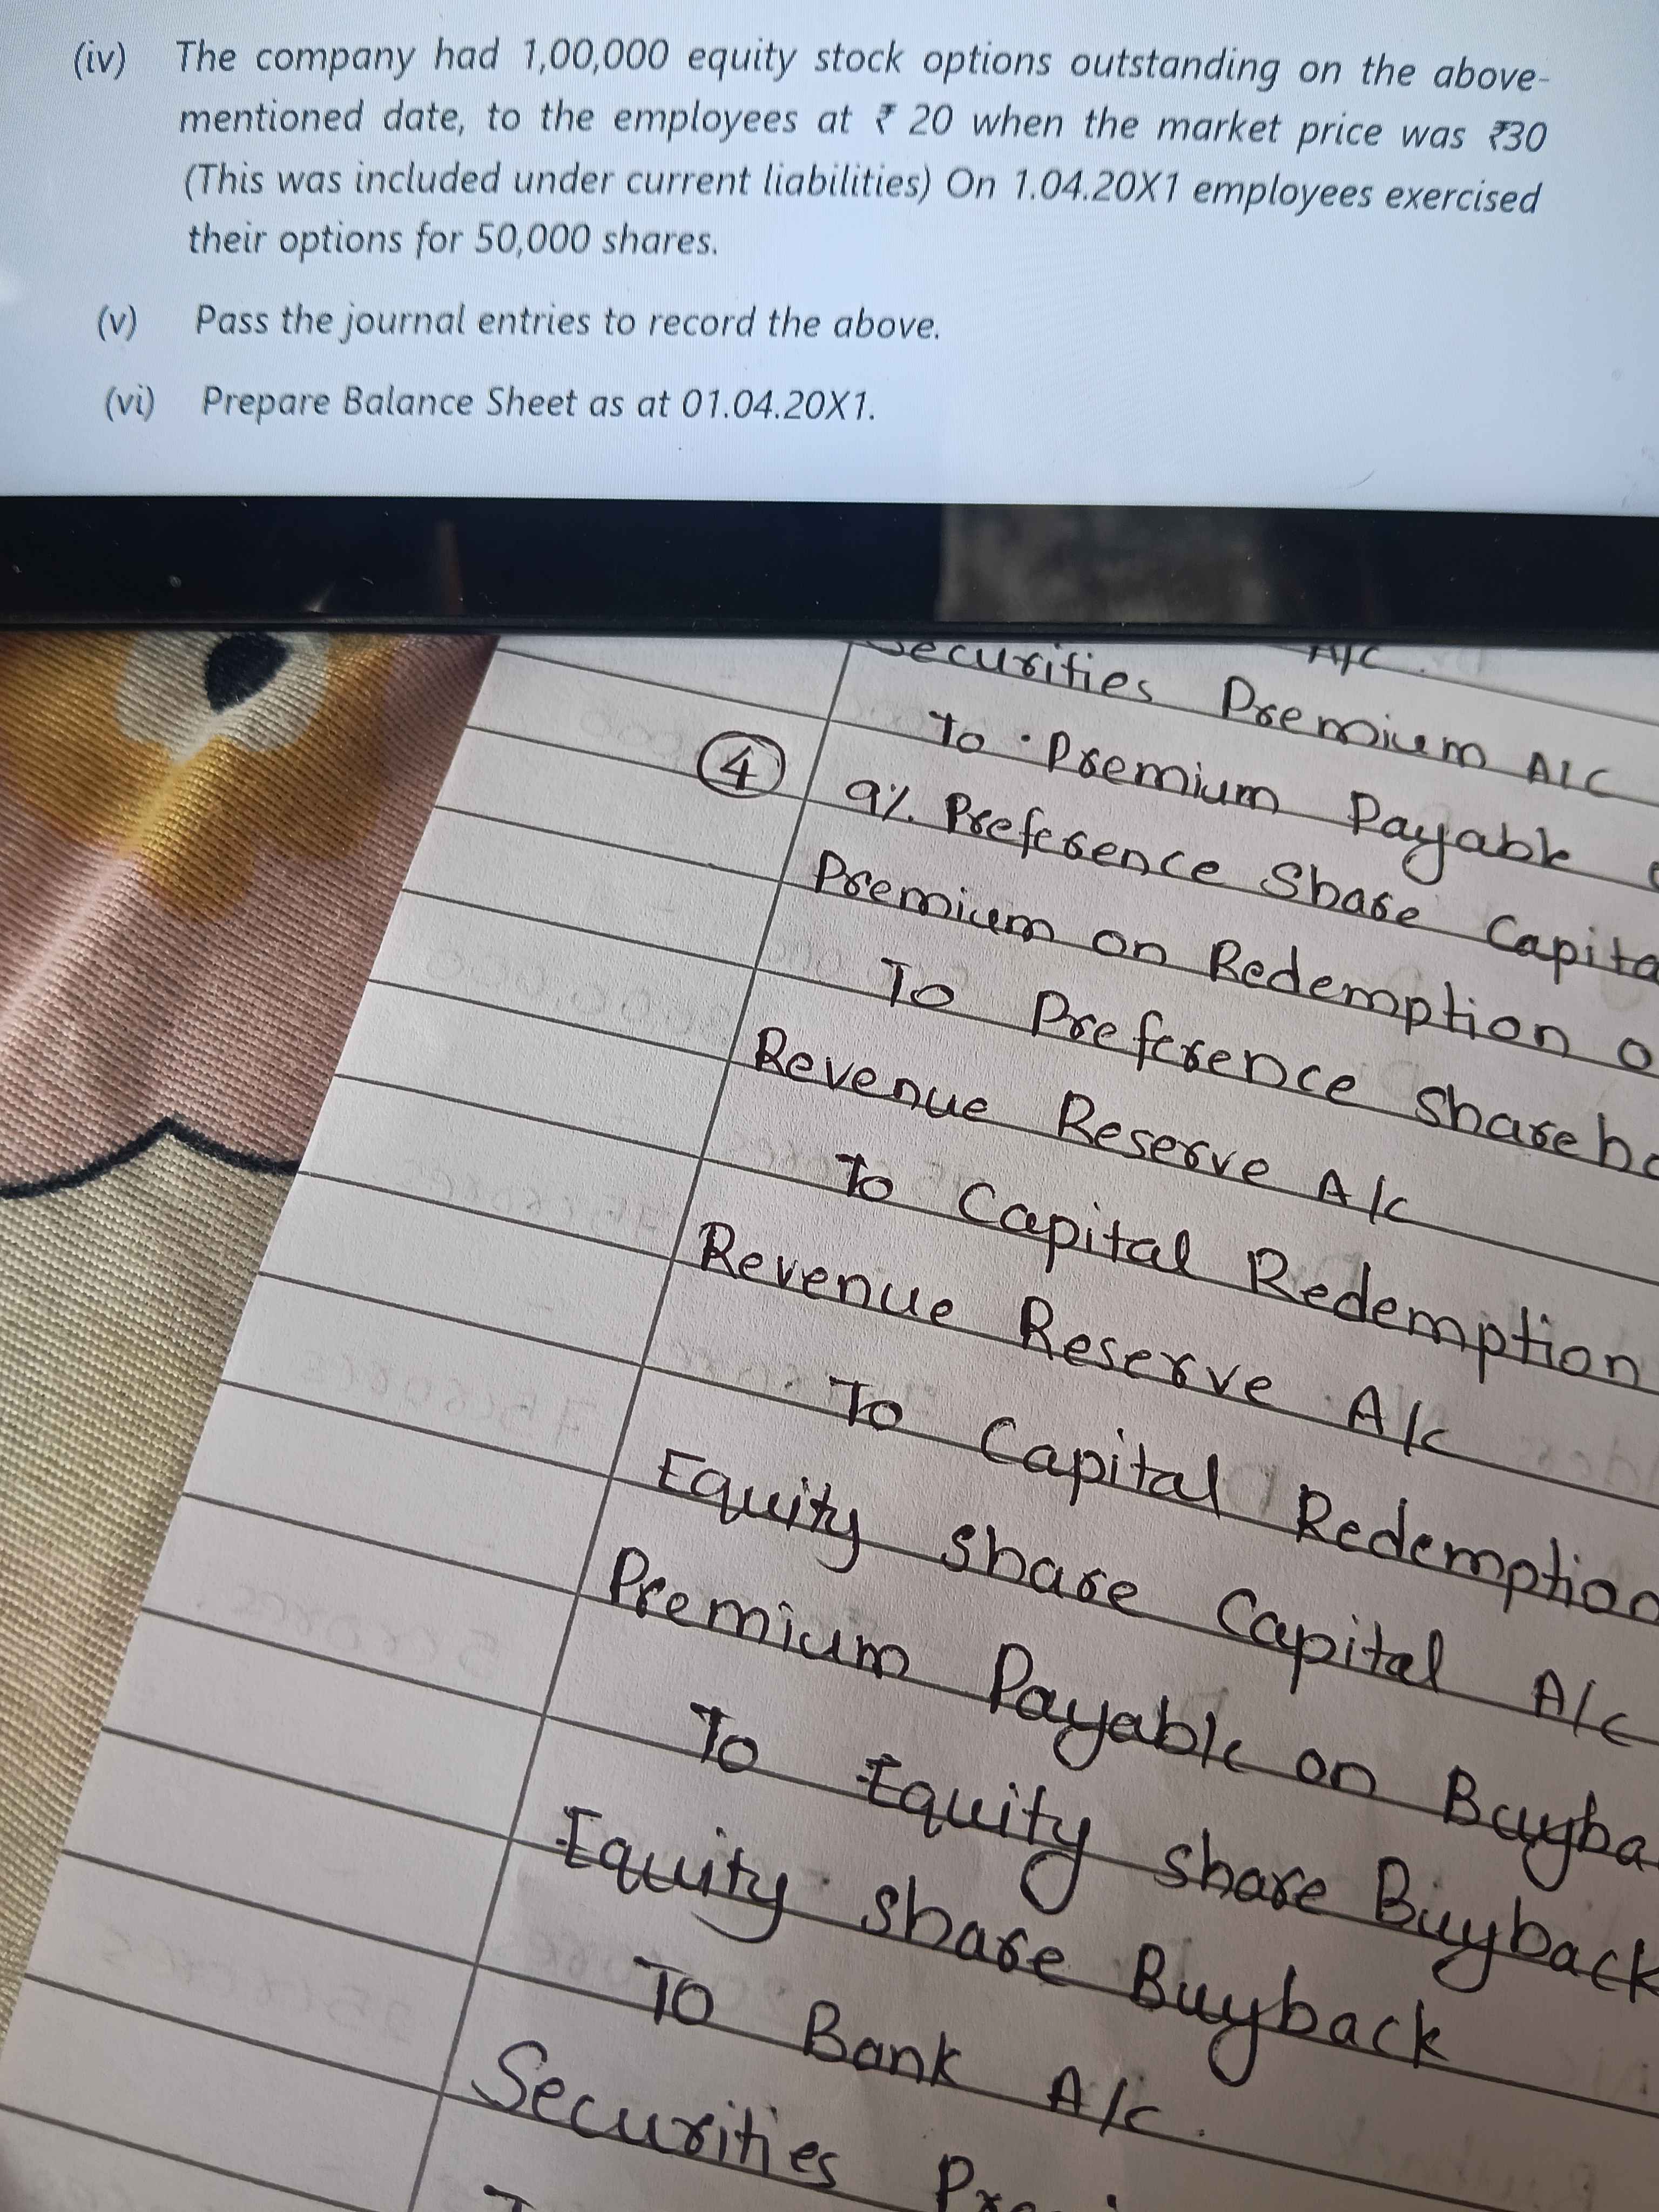 (iv) The company had 1,00,000 equity stock options outstanding on the above-
mentioned date, to the employees at ₹ 20 when the market price was ₹30
(This was included under current liabilities) On 1.04.20X1 employees exercised
their options for 50,000 shares.
(v) Pass the journal entries to record the above.
(vi) Prepare Balance Sheet as at 01.04.20X1.
A/C
Securities Premium A/C
To Premium Payable
④ 9% Preference Share Capita
Premium on Redemption o
To Preference Shareho
Revenue Reserve A/c
To Capital Redemption
Revenue Reserve A/c
To Capital Redemption
Equity Share Capital A/c
Premium Payable on Buyba
To Equity share Buyback
Equity share Buyback
To Bank A/c.
Securities